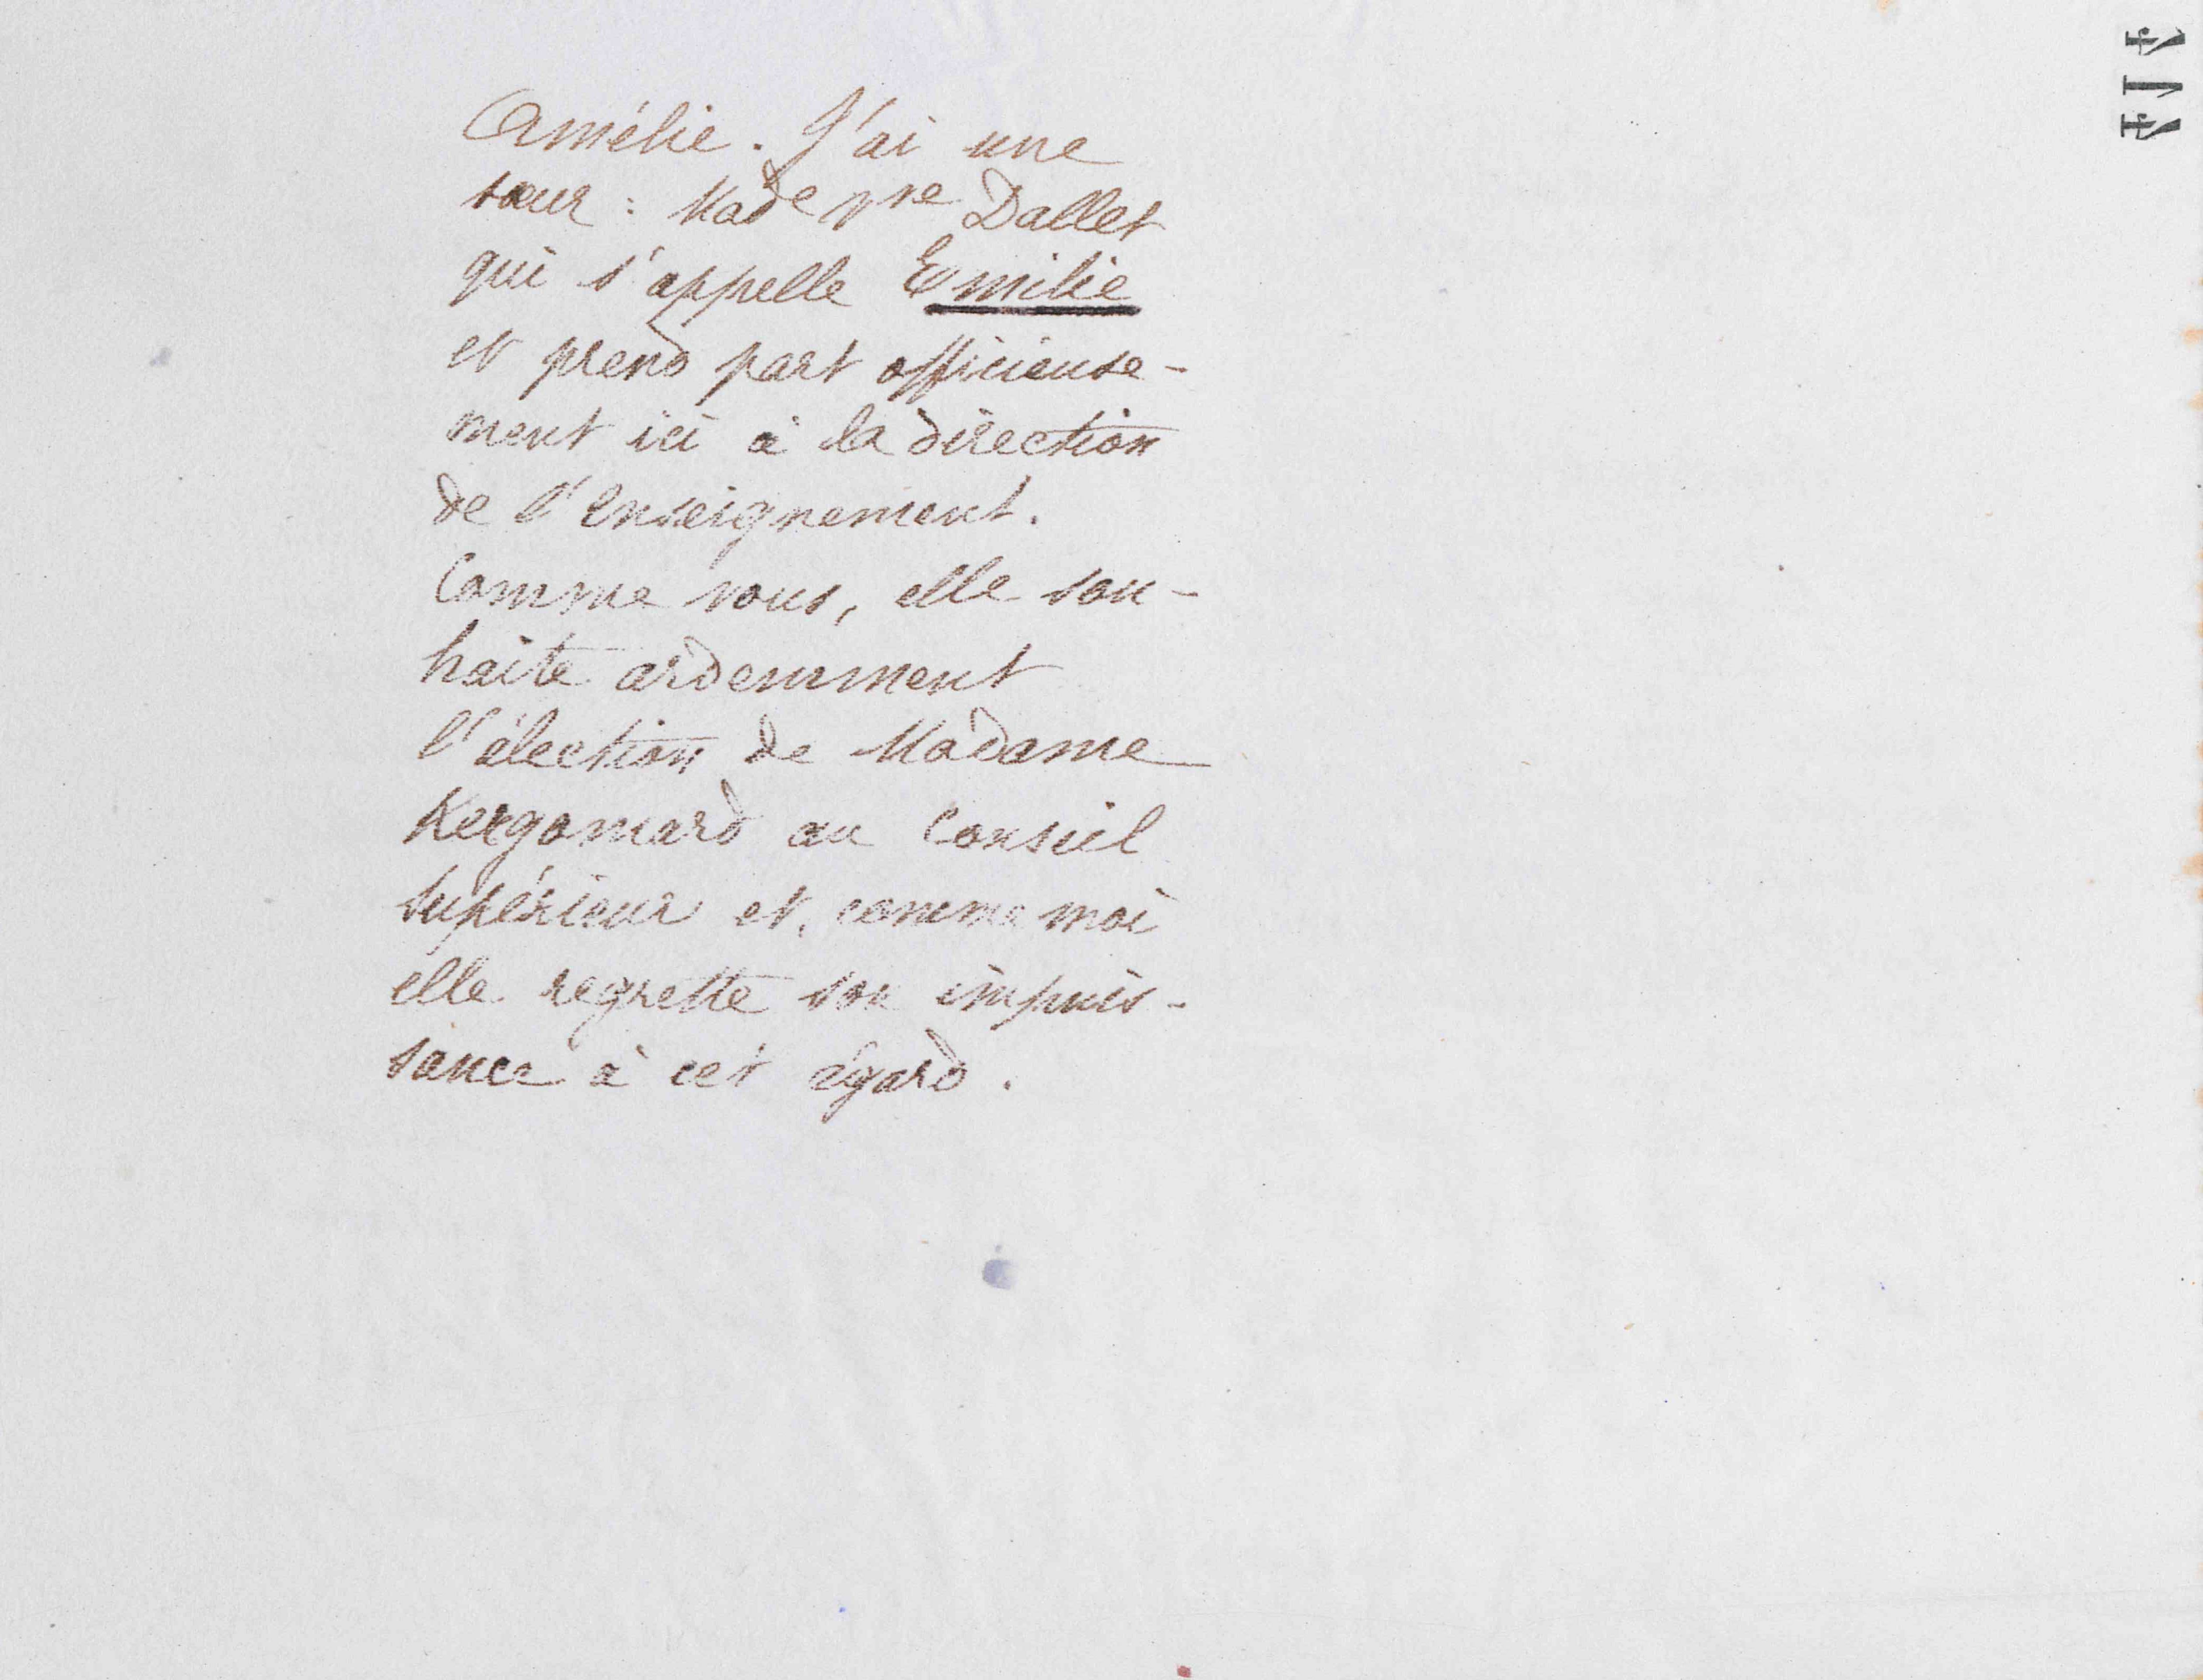 Amélie. J'ai une
sœur : Made Vve Dallet
qui s'appelle Emilie
et prend part officieuse-
ment ici à la direction
de l'Enseignement.
Comme vous, elle sou-
haite ardemment
l'élection de Madame
Kergomard au Conseil
Supérieur et, comme moi
elle regrette son impuis-
sance à cet égard.
414